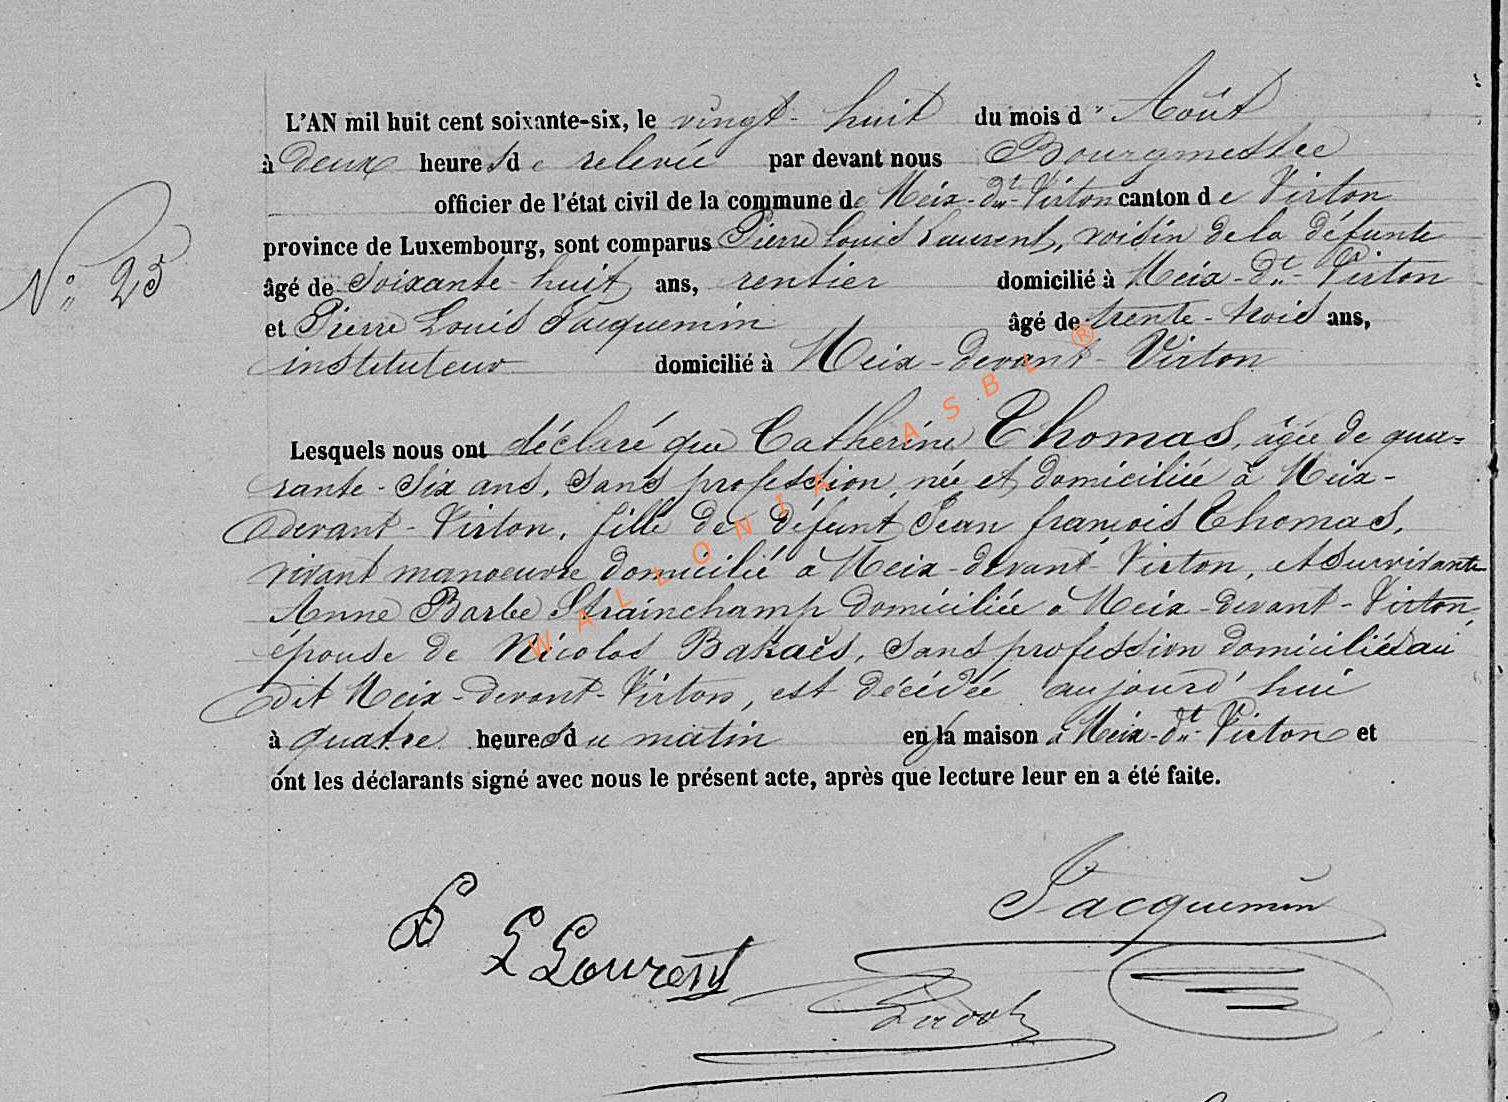 L'AN mil huit cent soixante-six, le vingt-huit du mois d' Août
à deux heures de relevée par devant nous Bourgmestre
officier de l'état civil de la commune de Meix-dt-Virton canton de Virton
N° 25
province de Luxembourg, sont comparus Pierre Louis Laurent, voisin de la défunte
âgé de soixante-huit ans, rentier domicilié à Meix-dt-Virton
et Pierre Louis Jacquemin âgé de trente-trois ans,
instituteur domicilié à Meix-devant-Virton
Lesquels nous ont déclaré que Catherine Thomas, âgée de qua=
rante-six ans, sans profession, née et domiciliée à Meix-
devant-Virton, fille de défunt Jean françois Thomas,
vivant manoeuvre domicilié à Meix-devant-Virton, et survivante
Anne Barbe Strainchamp domiciliée à Meix-devant-Virton,
épouse de Nicolas Bakaës, sans profession domiciliés au
dit Meix-devant-Virton, est décédée aujourd'hui
à quatre heures du matin en la maison à Meix-dt-Virton et
ont les déclarants signé avec nous le présent acte, après que lecture leur en a été faite.
Jacquemin
P L Lourent
WALLONIA ASBL ®